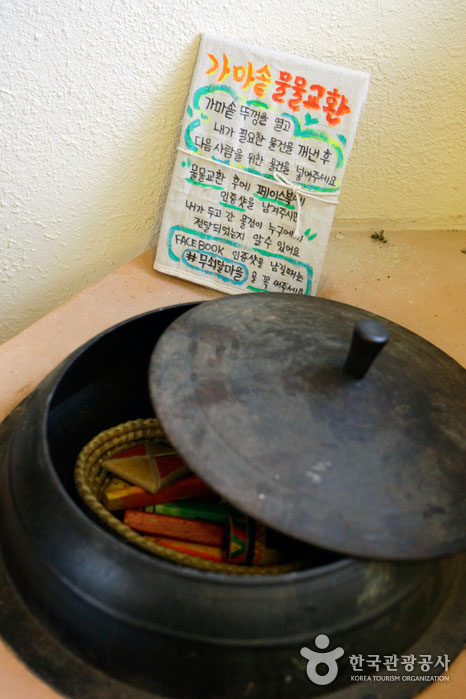 가마솥 물물교환
가마솥 뚜껑을 열고
내가 필요한 물건을 꺼낸 후
다음 사람을 위한 물건을 넣어주세요
물물교환 후에 페이스북에
인증샷을 남겨주시면
내가 두고 간 물건이 누구에게
전달되었는지 알 수 있어요
FACEBOOK 인증샷을 남길때는
#무쇠달마을 을 꼭 써주세요
한국관광공사
KOREA TOURISM ORGANIZATION